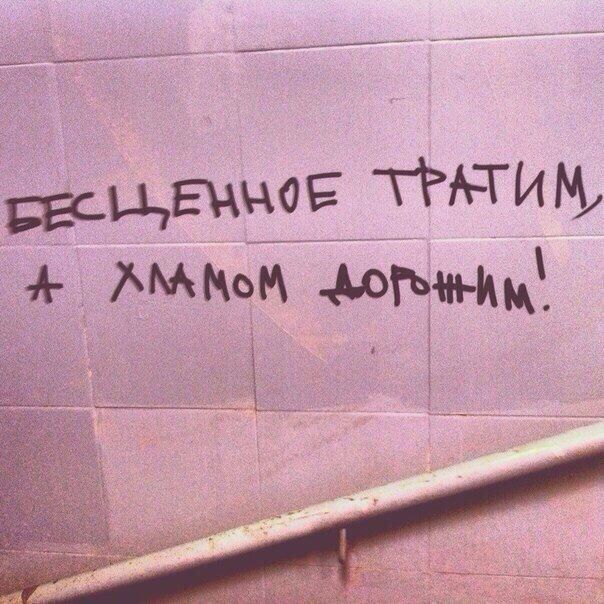 БЕСЦЕННОЕ ТРАТИМ,
А ХЛАМОМ ДОРОЖИМ!